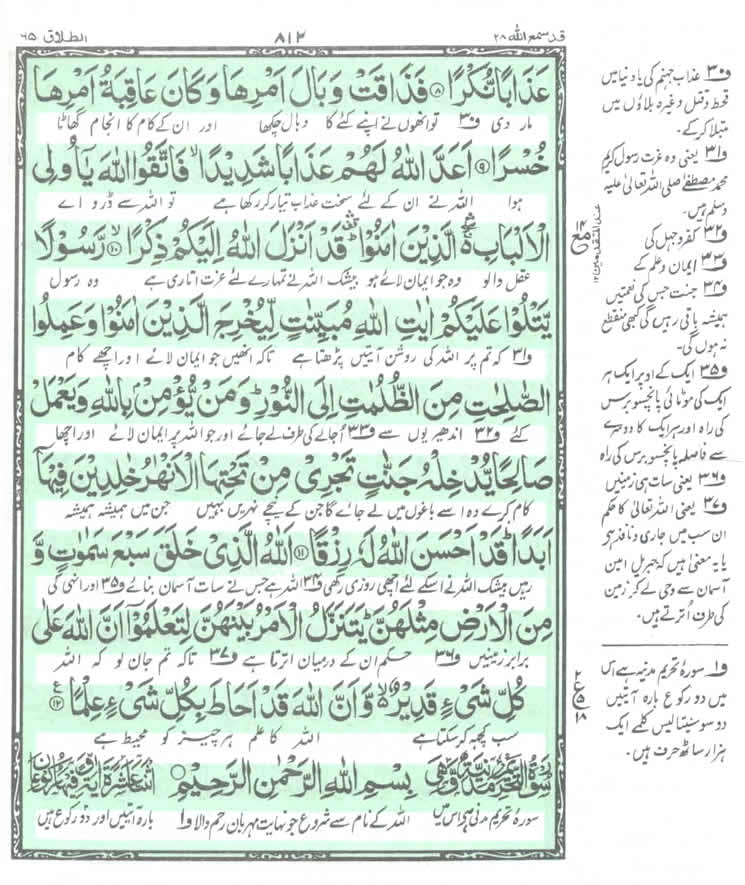 قد سمع الله ۲۸
۸۱۲
الطلاق ۶۵
عَذَابًا نُّكْرًا ۸ فَذَاقَتْ وَبَالَ اَمْرِهَا وَكَانَ عَاقِبَةُ اَمْرِهَا
مار دی ف۳۰ تو انھوں نے اپنے کئے کا وبال چکھا اور ان کے کام کا انجام گھاٹا
خُسْرًا ۹ اَعَدَّ اللّٰهُ لَهُمْ عَذَابًا شَدِيْدًا ۙ فَاتَّقُوا اللّٰهَ يٰۤاُولِی
ہوا اللہ نے ان کے لئے سخت عذاب تیار کر رکھا ہے تو اللہ سے ڈرو اے
الْاَلْبَابِ ۛۚ الَّذِيْنَ اٰمَنُوْا ۛ قَدْ اَنْزَلَ اللّٰهُ اِلَيْكُمْ ذِكْرًا ۱۰ رَّسُوْلًا
عقل والو وہ جو ایمان لائے ہو بیشک اللہ نے تمہارے لئے عزت اتاری ہے وہ رسول
يَّتْلُوْا عَلَيْكُمْ اٰيٰتِ اللّٰهِ مُبَيِّنٰتٍ لِّيُخْرِجَ الَّذِيْنَ اٰمَنُوْا وَعَمِلُوا
ف۳۱ کہ تم پر اللہ کی روشن آیتیں پڑھتا ہے تاکہ انھیں جو ایمان لائے اور اچھے کام
الصّٰلِحٰتِ مِنَ الظُّلُمٰتِ اِلَى النُّوْرِ ؕ وَمَنْ يُّؤْمِنْۢ بِاللّٰهِ وَيَعْمَلْ
کئے ف۳۲ اندھیریوں سے ف۳۳ اُجالے کی طرف لے جائے اور جو اللہ پر ایمان لائے اور اچھا
صَالِحًا يُّدْخِلْهُ جَنّٰتٍ تَجْرِیْ مِنْ تَحْتِهَا الْاَنْهٰرُ خٰلِدِيْنَ فِيْهَاۤ
کام کرے وہ اسے باغوں میں لے جائے گا جن کے نیچے نہریں بہیں جن میں ہمیشہ ہمیشہ
اَبَدًا ؕ قَدْ اَحْسَنَ اللّٰهُ لَهٗ رِزْقًا ۱۱ اَللّٰهُ الَّذِیْ خَلَقَ سَبْعَ سَمٰوٰتٍ وَّ
رہیں بیشک اللہ نے اسکے لئے اچھی روزی رکھی ف۳۴ اللہ ہے جس نے سات آسمان بنائے ف۳۵ اور انہی کی
مِنَ الْاَرْضِ مِثْلَهُنَّ ؕ يَتَنَزَّلُ الْاَمْرُ بَيْنَهُنَّ لِتَعْلَمُوْۤا اَنَّ اللّٰهَ عَلٰى
برابر زمینیں ف۳۶ حکم ان کے درمیان اترتا ہے ف۳۷ تاکہ تم جان لو کہ اللہ
كُلِّ شَیْءٍ قَدِيْرٌ ۙ وَّاَنَّ اللّٰهَ قَدْ اَحَاطَ بِكُلِّ شَیْءٍ عِلْمًا ۱۲
سب کچھ کر سکتا ہے اللہ کا علم ہر چیز کو محیط ہے
سُوْرَةُ التَّحْرِيْمِ مَدَنِيَّةٌ وَّهِیَ بِسْمِ اللّٰهِ الرَّحْمٰنِ الرَّحِيْمِ اثْنَتَا عَشْرَةَ اٰيَةً وَّفِيْهَا رُكُوْعَانِ
سورۂ تحریم مدنی ہے اس میں اللہ کے نام سے شروع جو نہایت مہربان رحم والا ف۱ بارہ آیتیں اور دو رکوع ہیں
ف۳۰ عذاب جہنم کی یا دنیا میں
قحط و قتل وغیرہ بلاؤں میں
مبتلا کرکے۔
ف۳۱ یعنی وہ عزت رسول کریم
محمد مصطفےٰ صلی اللہ تعالیٰ علیہ
وسلم ہیں۔
ف۳۲ کفر و جہل کی
ف۳۳ ایمان و علم کے
ف۳۴ جنت جس کی نعمتیں
ہمیشہ باقی رہیں گی کبھی منقطع
نہ ہوں گی۔
ف۳۵ ایک کے اوپر ایک ہر
ایک کی موٹائی پانچسو برس
کی راہ اور ہر ایک کا دوسرے
سے فاصلہ پانچسو برس کی راہ
ف۳۶ یعنی سات ہی زمینیں
ف۳۷ یعنی اللہ تعالیٰ کا حکم
ان سب میں جاری و نافذ ہے
یا یہ معنیٰ ہیں کہ جبریل امین
آسمان سے وحی لے کر زمین
کی طرف اُترتے ہیں۔
ف۱ سورۂ تحریم مدنیہ ہے اس
میں دو رکوع بارہ آیتیں
دو سو سینتالیس کلمے ایک
ہزار ساٹھ حرف ہیں۔